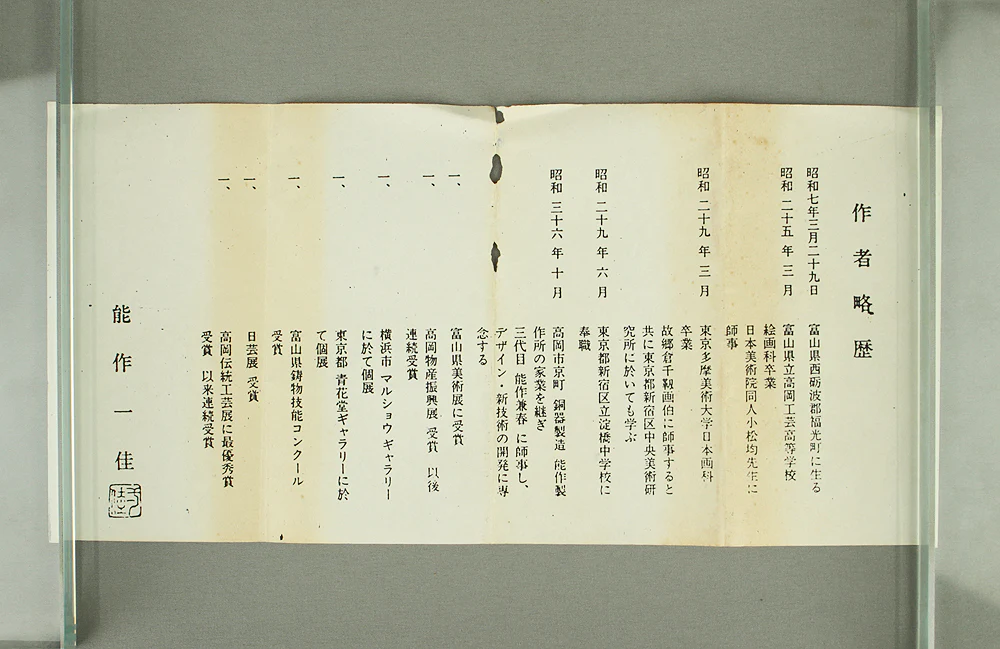 作者略歴
昭和七年三月二十九日 富山県西砺波郡福光町に生る
昭和 二十五年 三月 富山県立高岡工芸高等学校
絵画科卒業
日本美術院同人小松均先生に
師事
昭和 二十九年 三月 東京多摩美術大学日本画科
卒業
故郷倉千靱画伯に師事すると
共に東京都新宿区中央美術研
究所に於いても学ぶ
昭和 二十九年 六月 東京都新宿区立淀橋中学校に
奉職
昭和 三十六年 十月 高岡市京町 銅器製造 能作製
作所の家業を継ぎ
三代目 能作兼春 に師事し、
デザイン・新技術の開発に専
念する
一、 富山県美術展に受賞
一、 高岡物産振興展 受賞 以後
連続受賞
一、 横浜市 マルショウ ギャラリー
に於て個展
一、 東京都 青花堂ギャラリーに於
て個展
一、 富山県鋳物技能コンクール
受賞
一、 日芸展 受賞
一、 高岡伝統工芸展に最優秀賞
受賞 以来連続受賞
能作一佳